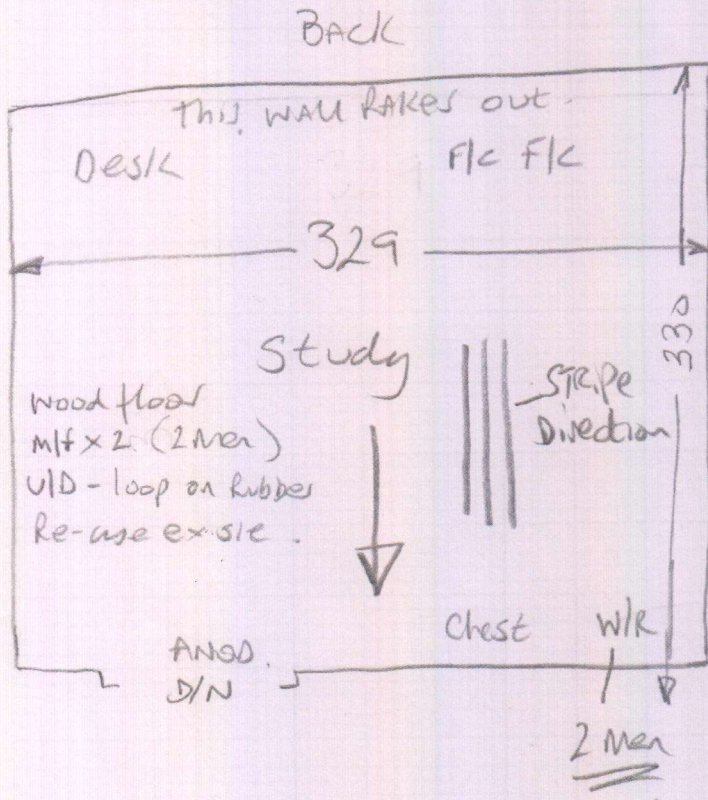 BACK
This WALL RAKES out.
Desk
F/c F/c
329
330
Study
STRIPe
Direction
wood floor
M/f x 2 (2 Men)
U/D - loop on Rubber
Re-use ex s/e.
Chest
W/R
ANOD.
D/N
2 Men